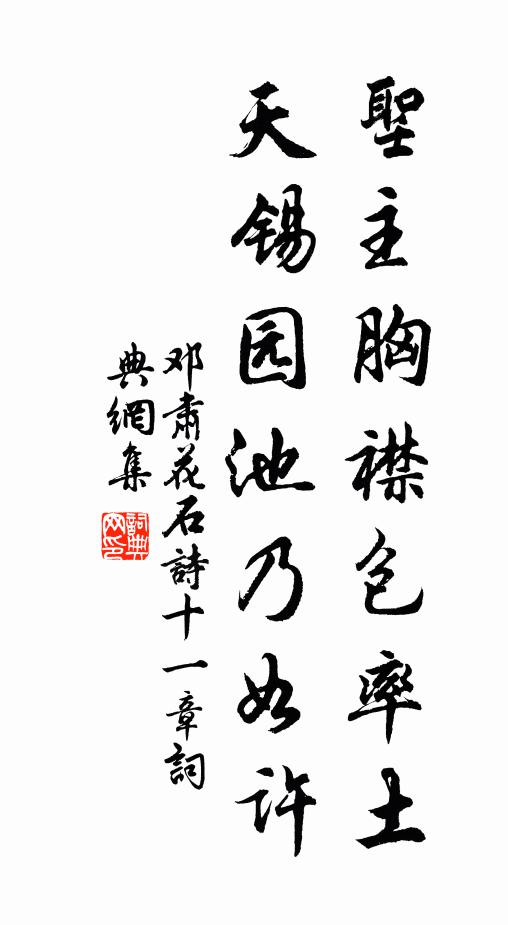 聖主胸襟包率土
天锡园池乃如许
邓肃花石詩十一章詞
典網集
詞典
网印